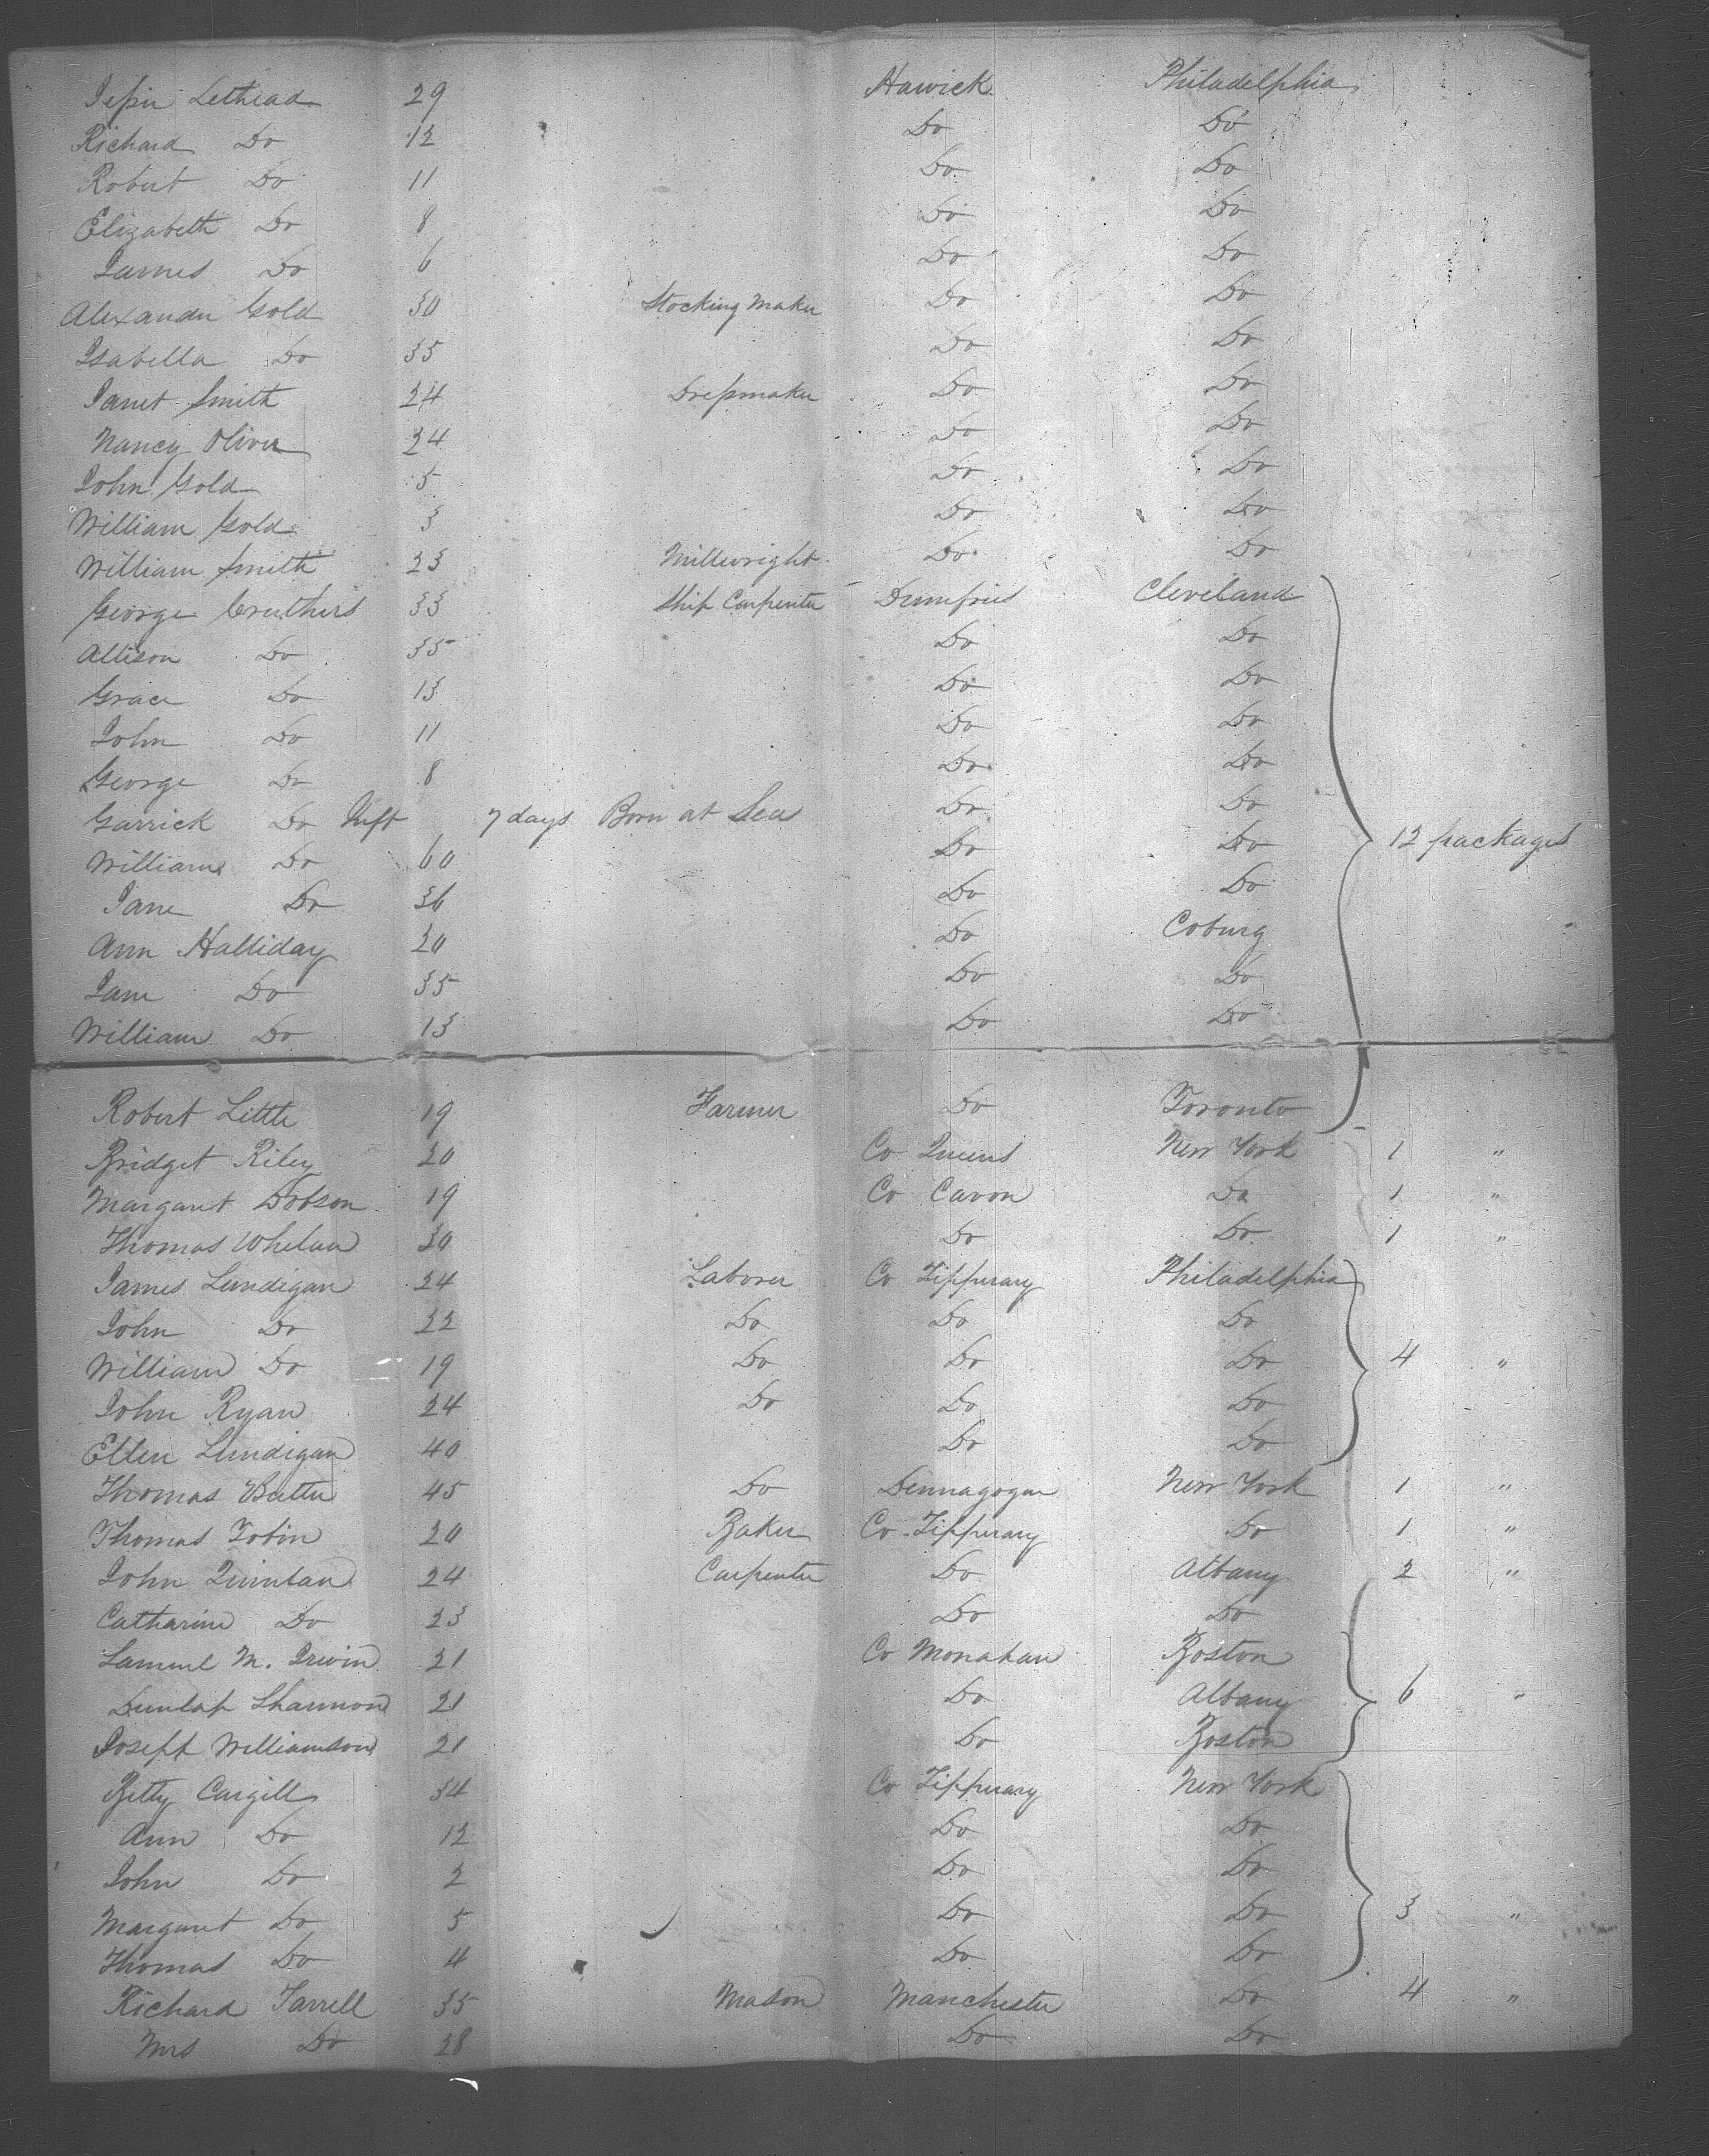 Jessie Lethead 29 Hawick Philadelphia
Richard Do 12 Do Do
Robert Do 11 Do Do
Elizabeth Do 8 Do Do
James Do 6 Do Do
Alexander Gold 30 Stocking Maker Do Do
Isabella Do 35 Do Do
Janet Smith 24 Dressmaker Do Do
Nancy Oliver 24 Do Do
John Gold 5 Do Do
William Gold 3 Do Do
William Smith 23 Millwright Do Do
George Cruthers 33 Ship Carpenter Dumfries Cleveland
Allison Do 35 Do Do
Grace Do 13 Do Do
John Do 11 Do Do
George Do 8 Do Do
Garrick Do Inft 7 days Born at Sea Do Do
William Do 60 Do Do 12 packages
Jane Do 36 Do Do
Ann Halliday 20 Do Coburg
Jane Do 35 Do Do
William Do 13 Do Do
Robert Little 19 Farmer Do Toronto
Bridget Riley 20 Co Queens New York 1 "
Margaret Dobson 19 Co Cavon Do 1 "
Thomas Whelan 30 Do Do 1 "
James Lundigan 24 Laborer Co Tipperary Philadelphia
John Do 22 Do Do Do
William Do 19 Do Do Do 4 "
John Ryan 24 Do Do Do
Ellen Lundigan 40 Do Do
Thomas 45 Do New York 1 "
Thomas Tobin 20 Baker Co Tipperary Do 1 "
John Quinlan 24 Carpenter Do Albany 2 "
Catharine Do 23 Do Do
Samuel M. Irwin 21 Co Monahan Boston
Dunlap Shannon 21 Do Albany 6 "
Joseph Williamson 21 Do Boston
Betty Cargill 34 Co Tipperary New York
Ann Do 12 Do Do
John Do 2 Do Do
Margaret Do 5 Do Do 3 "
Thomas Do 4 Do Do
Richard Farrell 35 Mason Manchester Do 4 "
Mrs Do 28 Do Do